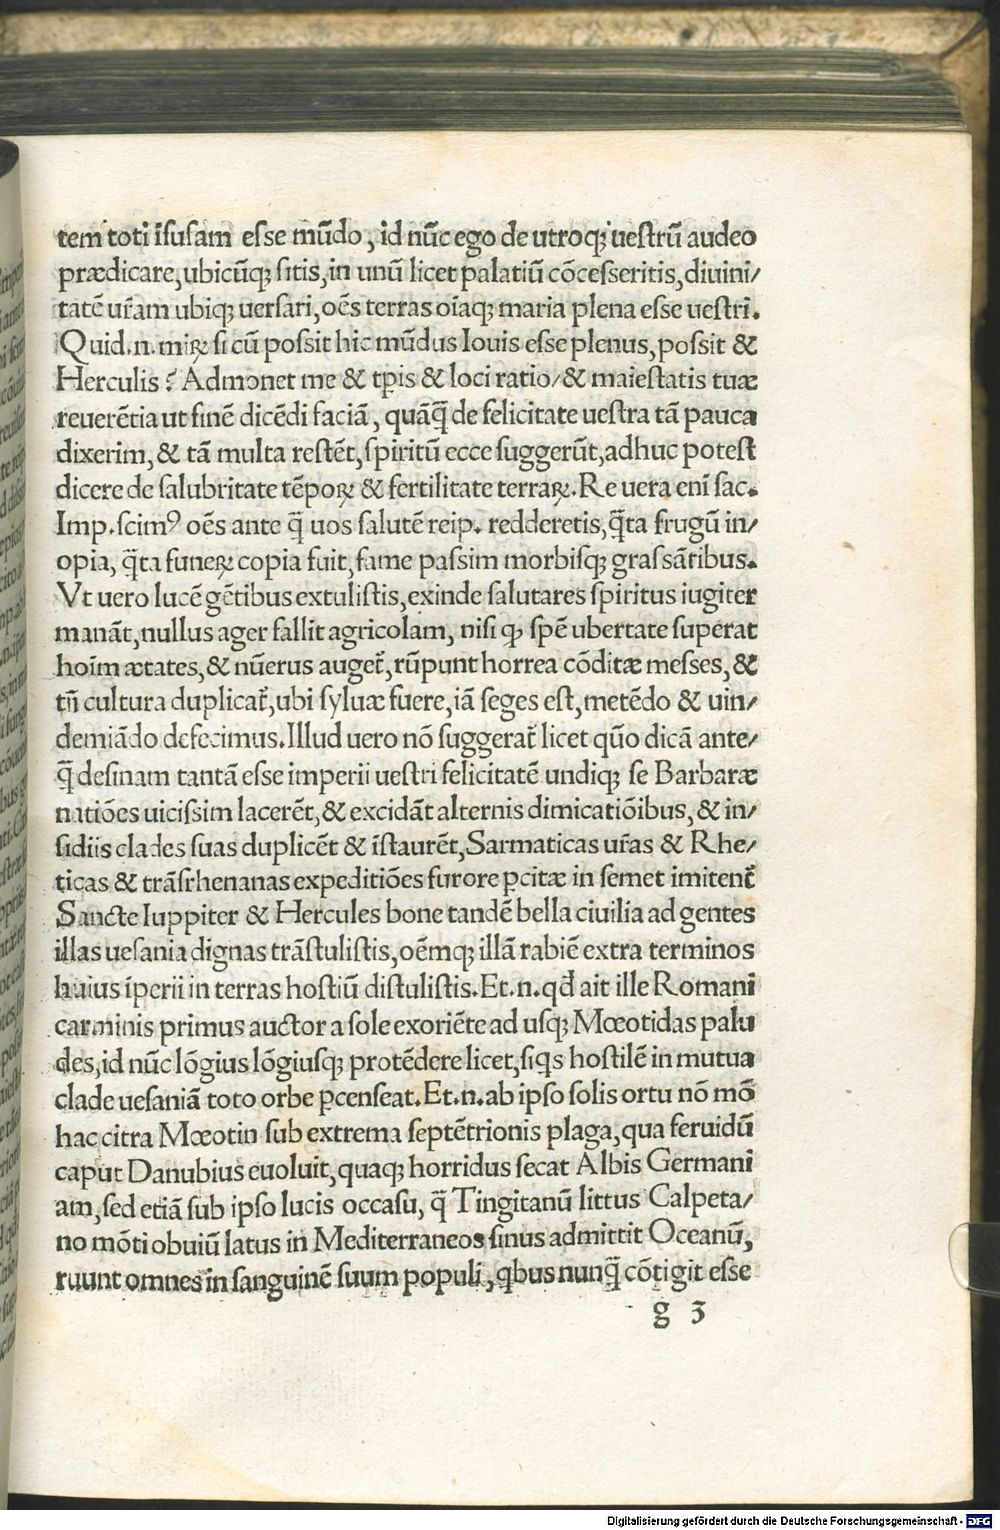 tem toti ĩfusam esse mũdo, id nũc ego de utroqꝫ uestrũ audeo
prædicare, ubicũqꝫ sitis, in unũ licet palatiũ cõcesseritis, diuini/
tatẽ ur̃am ubiqꝫ uersari, oẽs terras oĩaqꝫ maria plena esse uestri.
Quid.n.miꝝ si cũ possit hic mũdus Iouis esse plenus, possit &
Herculis? Admonet me & tp̃is & loci ratio/& maiestatis tuæ
reuerẽtia ut finẽ dicẽdi faciã, quãq̃ de felicitate uestra tã pauca
dixerim, & tã multa restẽt, spiritũ ecce suggerũt, adhuc potest
dicere de salubritate tẽpoꝝ & fertilitate terraꝝ. Re uera eni᷃ sac.
Imp. scimꝰ oẽs ante q̃ uos salutẽ reip. redderetis, q̃ta frugũ in/
opia, q̃ta funeꝝ copia fuit, fame passim morbisqꝫ grassãtibus.
Vt uero lucẽ gẽtibus extulistis, exinde salutares spiritus iugiter
manãt, nullus ager fallit agricolam, nisi ꝙ spẽ ubertate superat
hoĩm ætates, & nũerus auget̃, rũpunt horrea cõditæ messes, &
tñ cultura duplicat̃, ubi syluæ fuere, iã seges est, metẽdo & uin/
demiãdo defecimus. Illud uero nõ suggerat̃ licet quõ dicã ante/
q̃ desinam tantã esse imperii uestri felicitatẽ undiqꝫ se Barbaræ
natiões uicissim lacerẽt, & excidãt alternis dimicatiõibus, & in/
sidiis clades suas duplicẽt & ĩstaurẽt, Sarmaticas ur̃as & Rhe/
ticas & trãsrhenanas expeditiões furore ꝑcitæ in semet imitent̃
Sancte Iuppiter & Hercules bone tandẽ bella ciuilia ad gentes
illas uesania dignas trãstulistis, oẽmqꝫ illã rabiẽ extra terminos
huius ĩperii in terras hostiũ distulistis. Et.n.qđ ait ille Romani
carminis primus auctor a sole exoriẽte ad usqꝫ Mœotidas palu
des, id nũc lõgius lõgiusqꝫ protẽdere licet, siqs hostilẽ in mutua
clade uesaniã toto orbe ꝑcenseat. Et.n.ab ipso solis ortu nõ mõ
hac citra Mœotin sub extrema septẽtrionis plaga, qua feruidũ
caput Danubius euoluit, quaqꝫ horridus secat Albis Germani
am, sed etiã sub ipso lucis occasu, q̃ Tingitanũ littus Calpeta/
no mõti obuiũ latus in Mediterraneos sinus admittit Oceanũ,
ruunt omnes in sanguinẽ suum populi, qbus nunq̃ cõtigit esse
g 3
Digitalisierung gefördert durch die Deutsche Forschungsgemeinschaft - DFG